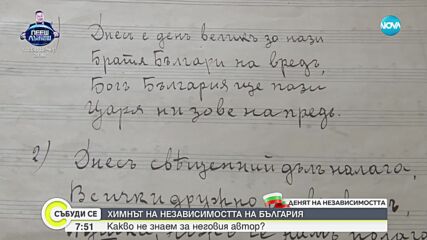 ПЕЕШ
NOVA
Днесь е день великъ зо нази
Братя Българи на вредъ,
Богъ България ще пази
Царя ни зове на предь.
2) Днесъ свѣщенний дългъ налага,
Всички дружно
ДЕНЯТ НА НЕЗАВИСИМОСТТА
СЪБУДИ СЕ
ХИМНЪТ НА НЕЗАВИСИМОСТТА НА БЪЛГАРИЯ
7:51
Какво не знаем за неговия автор?